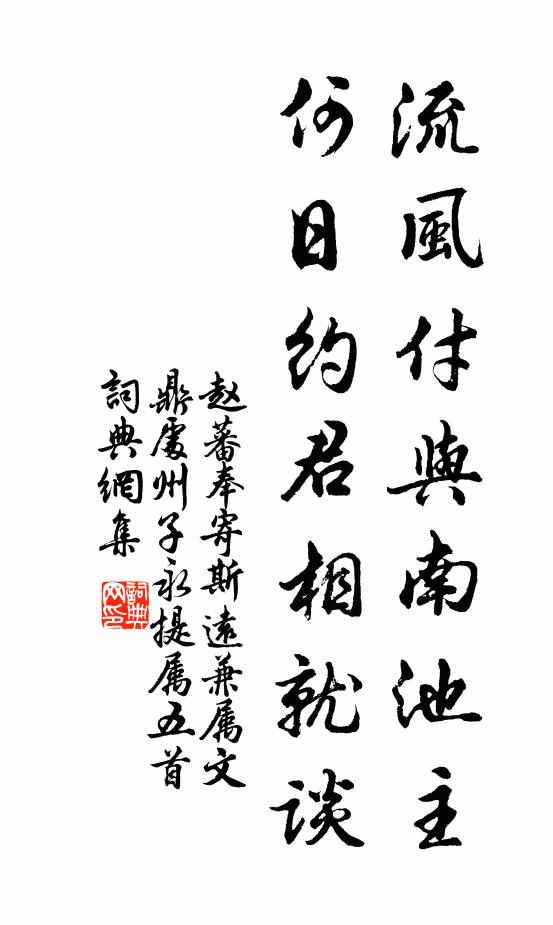 流風付與南池主
何日約君相就談
赵蕃奉寄斯遠兼属文
鼎處州子永提属五首
詞典網集
詞典網印